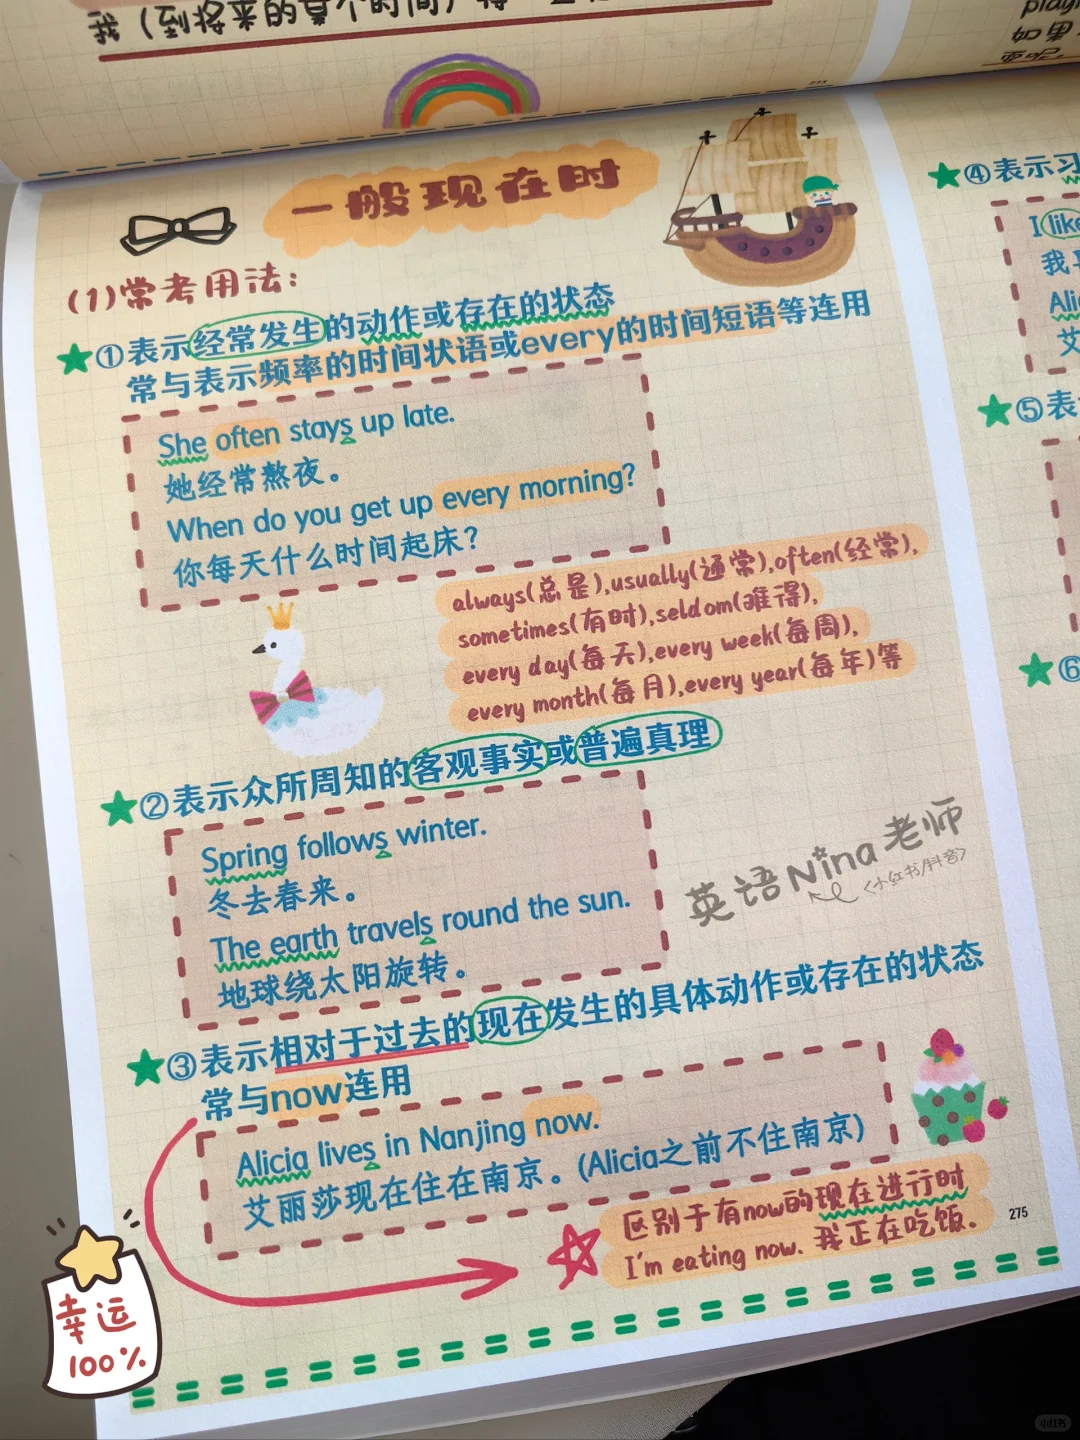 我（到将来的某个时间）
如果
273
一般现在时
(1)常考用法:
①表示经常发生的动作或存在的状态
常与表示频率的时间状语或every的时间短语等连用
She often stays up late.
她经常熬夜。
When do you get up every morning?
你每天什么时间起床?
always(总是),usually(通常),often(经常),
sometimes(有时),seldom(难得),
every day(每天),every week(每周),
every month(每月),every year(每年)等
②表示众所周知的客观事实或普遍真理
Spring follows winter.
冬去春来。
The earth travels round the sun.
地球绕太阳旋转。
英语Nina老师
<小红书/抖音>
③表示相对于过去的现在发生的具体动作或存在的状态
常与now连用
Alicia lives in Nanjing now.
艾丽莎现在住在南京。(Alicia之前不住南京)
区别于有now的现在进行时
I'm eating now. 我正在吃饭.
275
幸运
100%
④表示习
I like
我
Alic
艾
⑤表
⑥
小红书